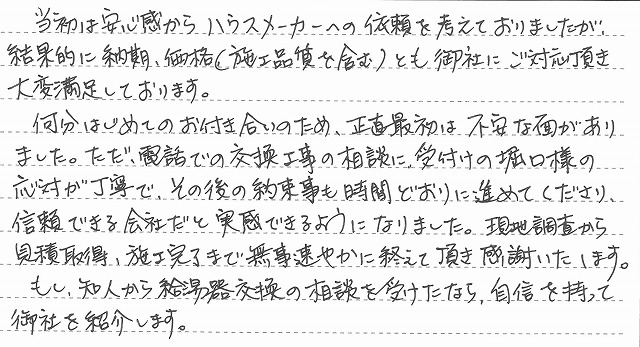 当初は安心感からハウスメーカーへの依頼を考えておりましたが、
結果的に納期、価格(施工品質を含む)とも御社にご対応頂き
大変満足しております。
何分はじめてのお付き合いのため、正直最初は不安な面があり
ました。ただ、電話での交換工事の相談に、受付けの堀口様の
応対が丁寧で、その後の約束事も時間どおりに進めてくださり、
信頼できる会社だと実感できるようになりました。現地調査から
見積取得、施工完了まで無事速やかに終えて頂き感謝いたします。
もし、知人から給湯器交換の相談を受けたなら、自信を持って
御社を紹介します。